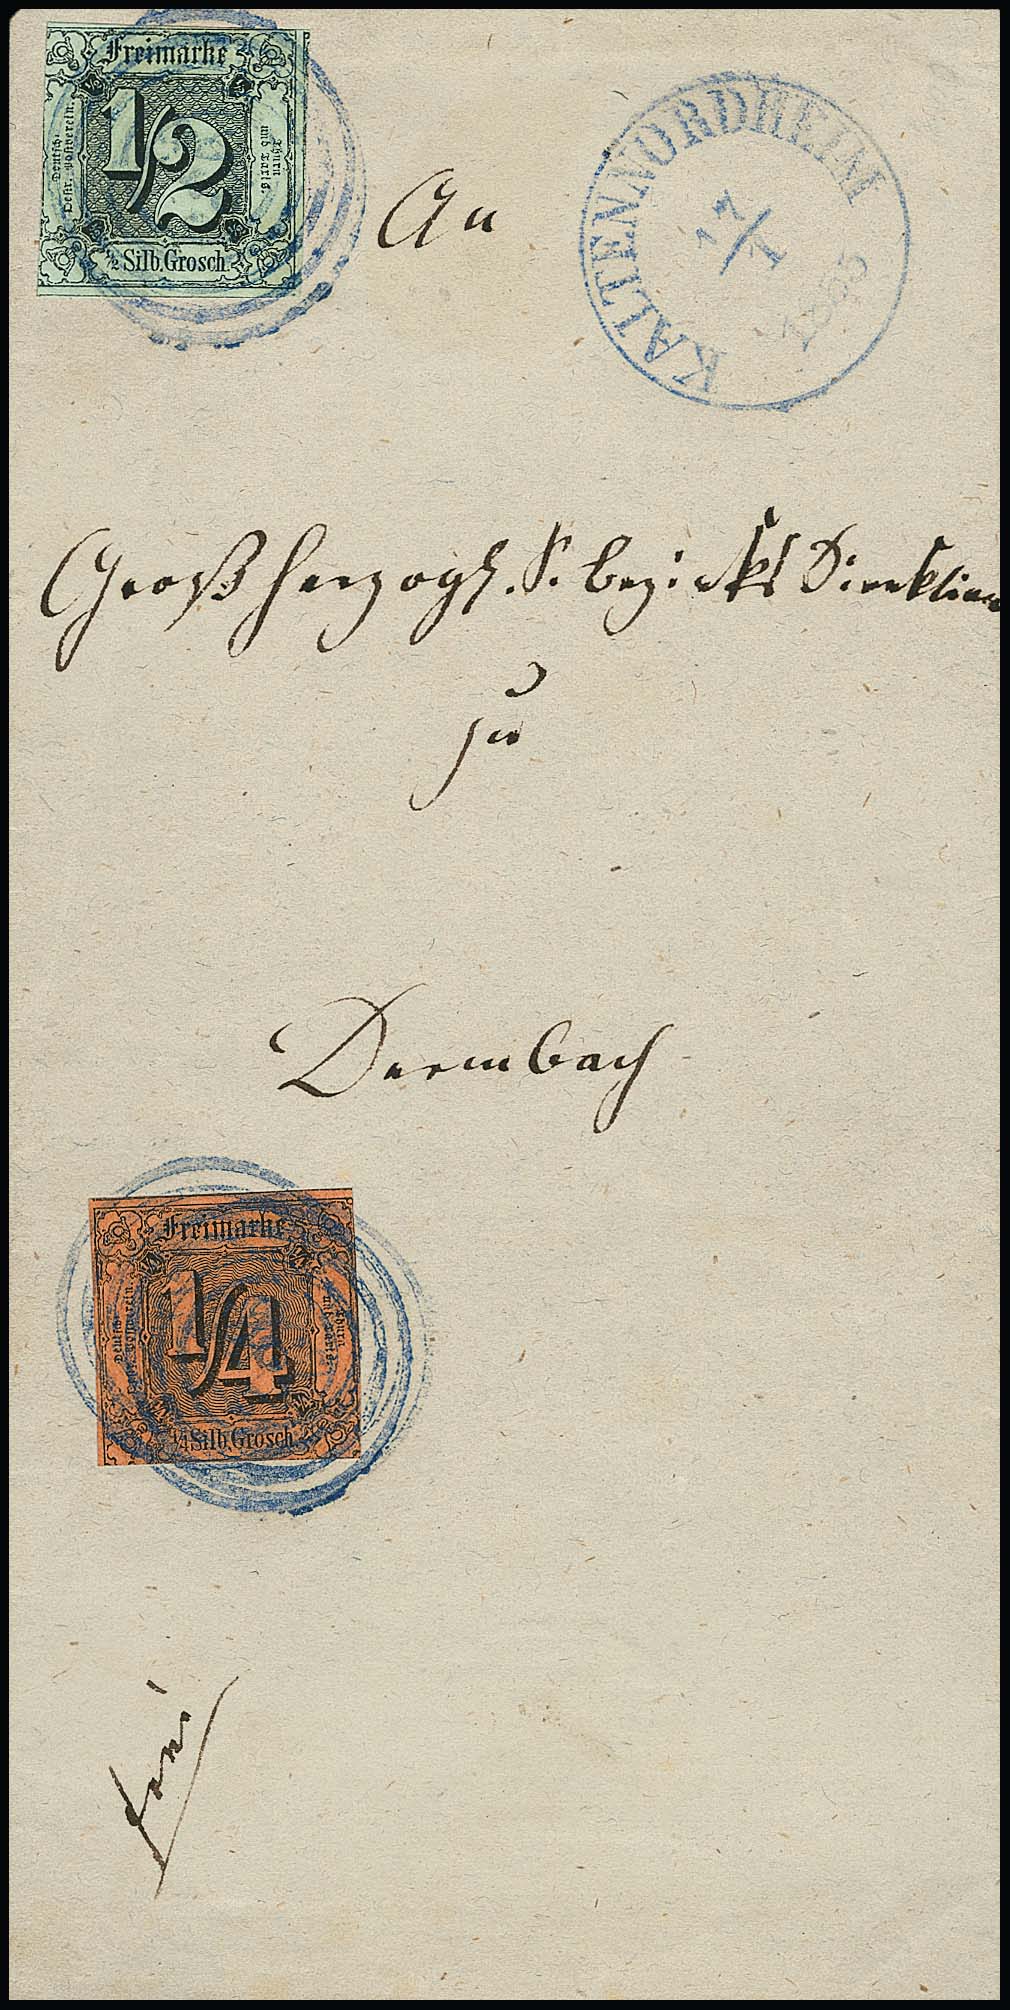 Freimarke
Deutsch-
Oestr. Postverein.
1/2
Thurn
und Taxis.
1/2 Silb. Grosch.
KALTENNORDHEIM
17/1
An
Großherzogl. S. Bezirks Direktion
zu
Dermbach
Freimarke
Deutsch-
Oestr. Postverein.
1/4
Thurn
und Taxis.
1/4 Silb. Grosch.
frei